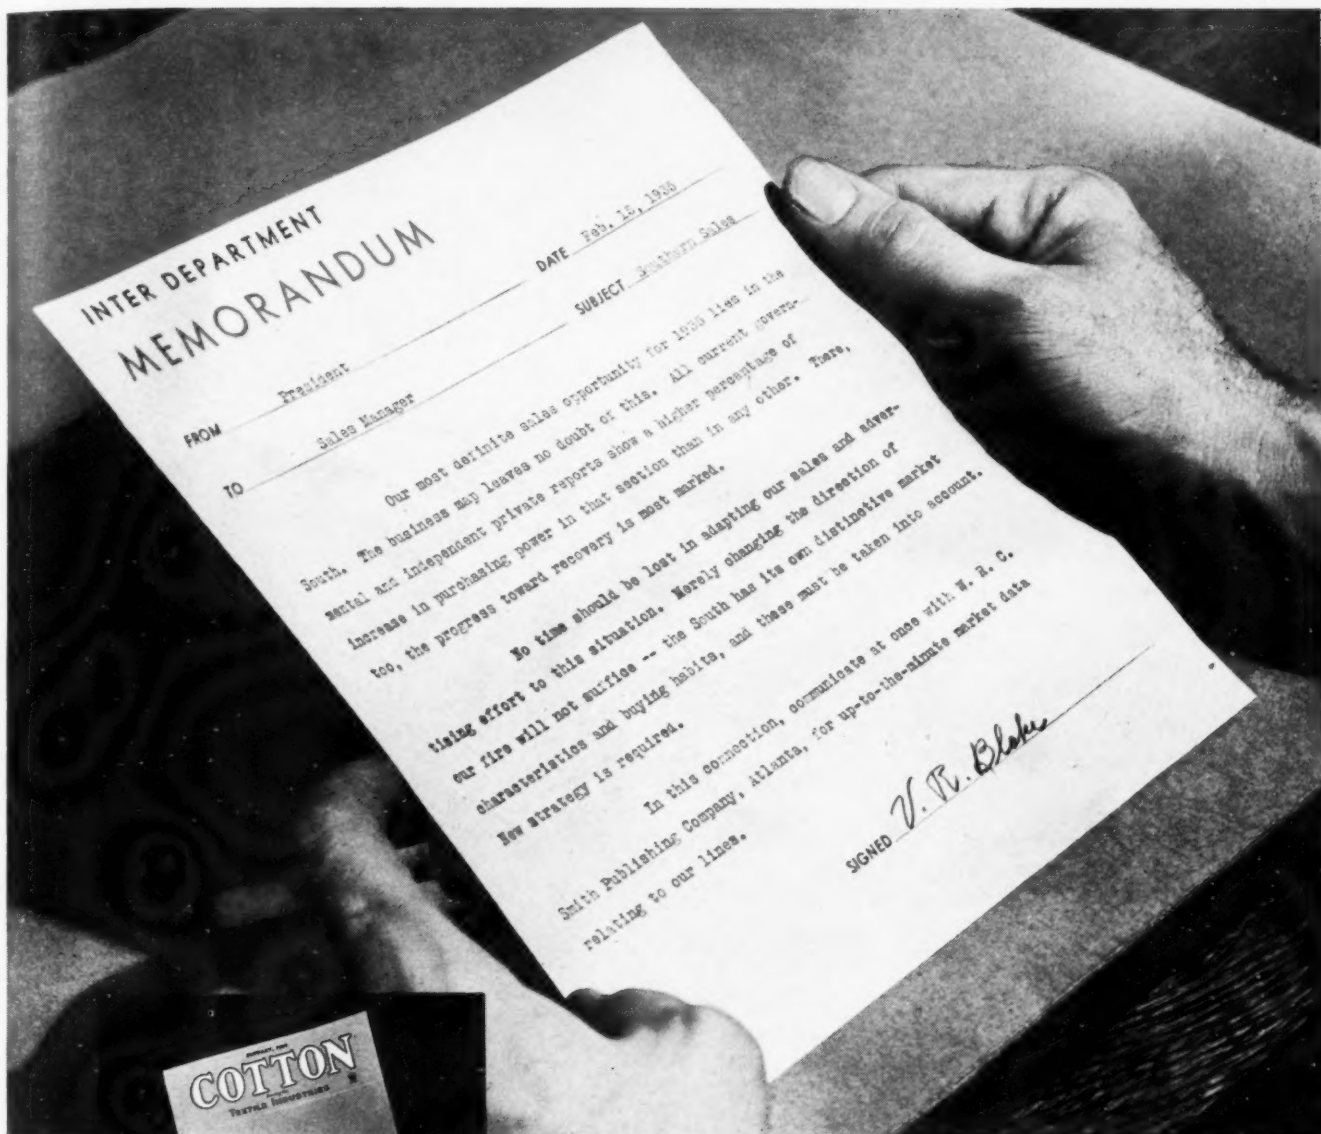 INTER DEPARTMENT
MEMORANDUM
DATE Feb. 15, 1935
FROM President
SUBJECT Southern Sales
TO Sales Manager
Our most definite sales opportunity for 1935 lies in the
South. The business map leaves no doubt of this. All current govern-
mental and independent private reports show a higher percentage of
increase in purchasing power in that section than in any other. There,
too, the progress toward recovery is most marked.
No time should be lost in adapting our sales and adver-
tising effort to this situation. Merely changing the direction of
our fire will not suffice -- the South has its own distinctive market
characteristics and buying habits, and these must be taken into account.
New strategy is required.
In this connection, communicate at once with W. R. C.
Smith Publishing Company, Atlanta, for up-to-the-minute market data
relating to our lines.
SIGNED V. R. Blake
COTTON
TEXTILE INDUSTRIES